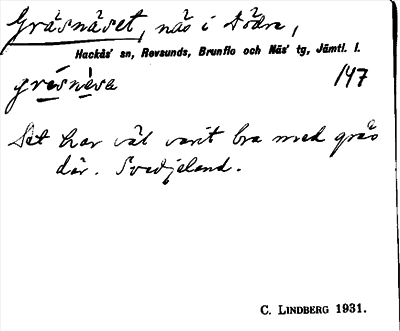 Gräsnäset, näs i Södra,
Hackås' sn, Revsunds, Brunflo och Näs' tg, Jämtl. l.
gré̱snè̱sa 147
Det har väl varit bra med gräs
där. Svedjeland.
C. LINDBERG 1931.